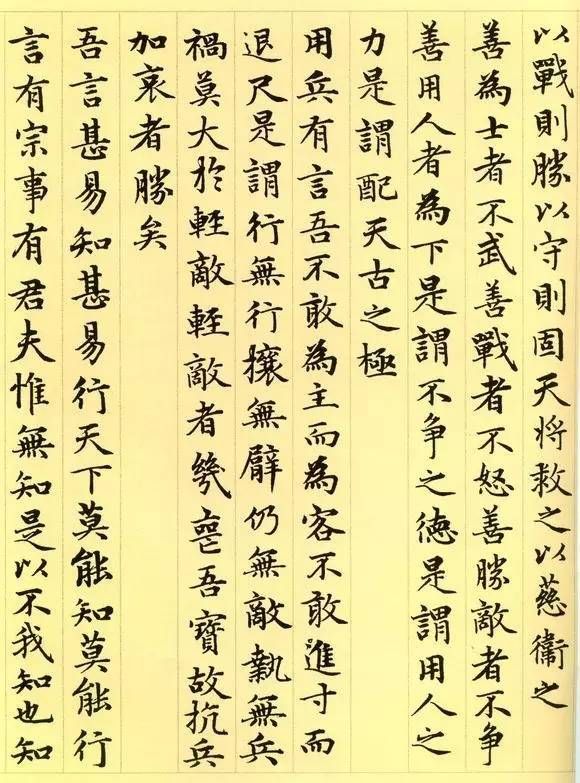 以戰則勝以守則固天将救之以慈衛之
善為士者不武善戰者不怒善勝敵者不争
善用人者為下是謂不争之德是謂用人之
力是謂配天古之極
用兵有言吾不敢為主而為客不敢進寸而
退尺是謂行無行攘無臂仍無敵執無兵
禍莫大於輕敵輕敵者幾喪吾寶故抗兵
加哀者勝矣
吾言甚易知甚易行天下莫能知莫能行
言有宗事有君夫惟無知是以不我知也知